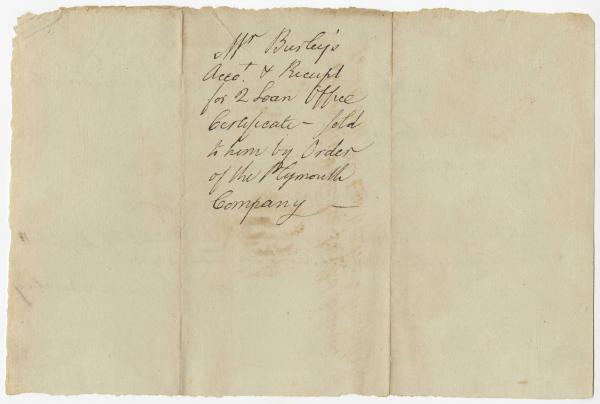 Mr Burley's
Acco.t & Receipt
for 2 Loan Office
Certificate - sold
to him by Order
of the Plymouth
Company —